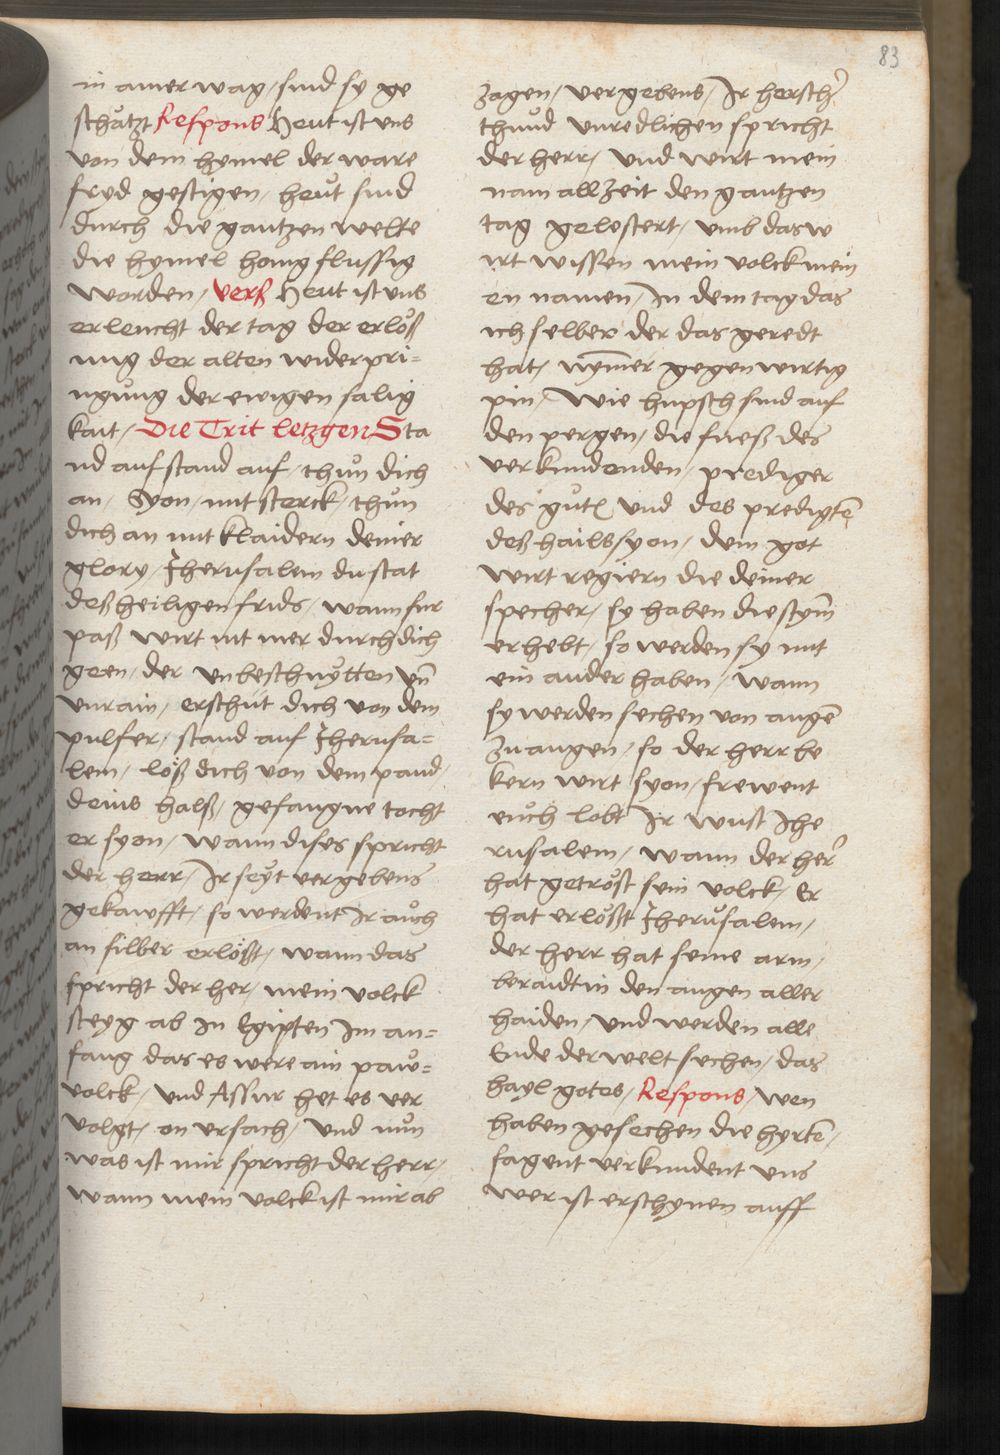 83
in ainer wag / sind sy ge
schatzt Respons Heut ist vns
von dem hymel der ware
fryd gestigen / heut sind
durch die gantzen welte
die hymel honig flussig
worden / Verß Heut ist vns
erleucht der tag der erlöß
ung der alten widerpri=
ngung der ewigen salig
kait / Die Trit letzgen Sta
nd auf stand auf / thun dich
an / Syon / mit sterck / thun
dich an mit klaidern deiner
glory / Jherusalem du stat
deß heiligen frids / wann fur
paß wirt nit mer durch dich
geen / der vnbeschnytten vn̄
vnrain / erschut dich von dem
pulfer / stand auf Jherusa=
lem / löß dich von dem pand /
deins halß / gefangne tocht
er syon / wann dises spricht
der herr / Ir seyt vergebens
gekawfft / so werdent Ir auch
an silber erlößt / wann das
spricht der her / mein volck
steyg ab in Egipten Im an=
fang das es were ain paw=
volck / vnd Assur het es ver
volgt / on vrsach / vnd nun
was ist mir spricht der herr /
wann mein volck ist mir ab
zagen / vergebens / Ir herscher
thund vnredlichen spricht
der herr / vnd wirt mein
nam all zeit den gantzen
tag gelestert / vmb das w
irt wissen mein volck mein
en namen / In dem tag das
ich selber der das geredt
hat / nym̄er gegenwirtig
pin / Wie hupsch sind auf
den pergen / die fueß des
verkundenden / prediger
des gutē vnd des predigtē
deß hails syon / dem got
wirt regiern die deiner
specher / sy haben die stym̄
erhebt / so werden sy mit
ein ander haben / wann
sy werden sechen von augē
zu augen / so der herr be
kern wirt syon / frewent
euch lobt Ir wust Jhe
rusalem / wann der her
hat getröst sein volck / Er
hat erlößt Jherusalem /
der herr hat seine arm /
beraidt in den augen aller
haiden / vnd werden alle
Ende der welt sechen / das
hayl gotes / Respons / wen
haben gesechen die hyrtē /
sagent verkundent vns
wer ist erschynen auff